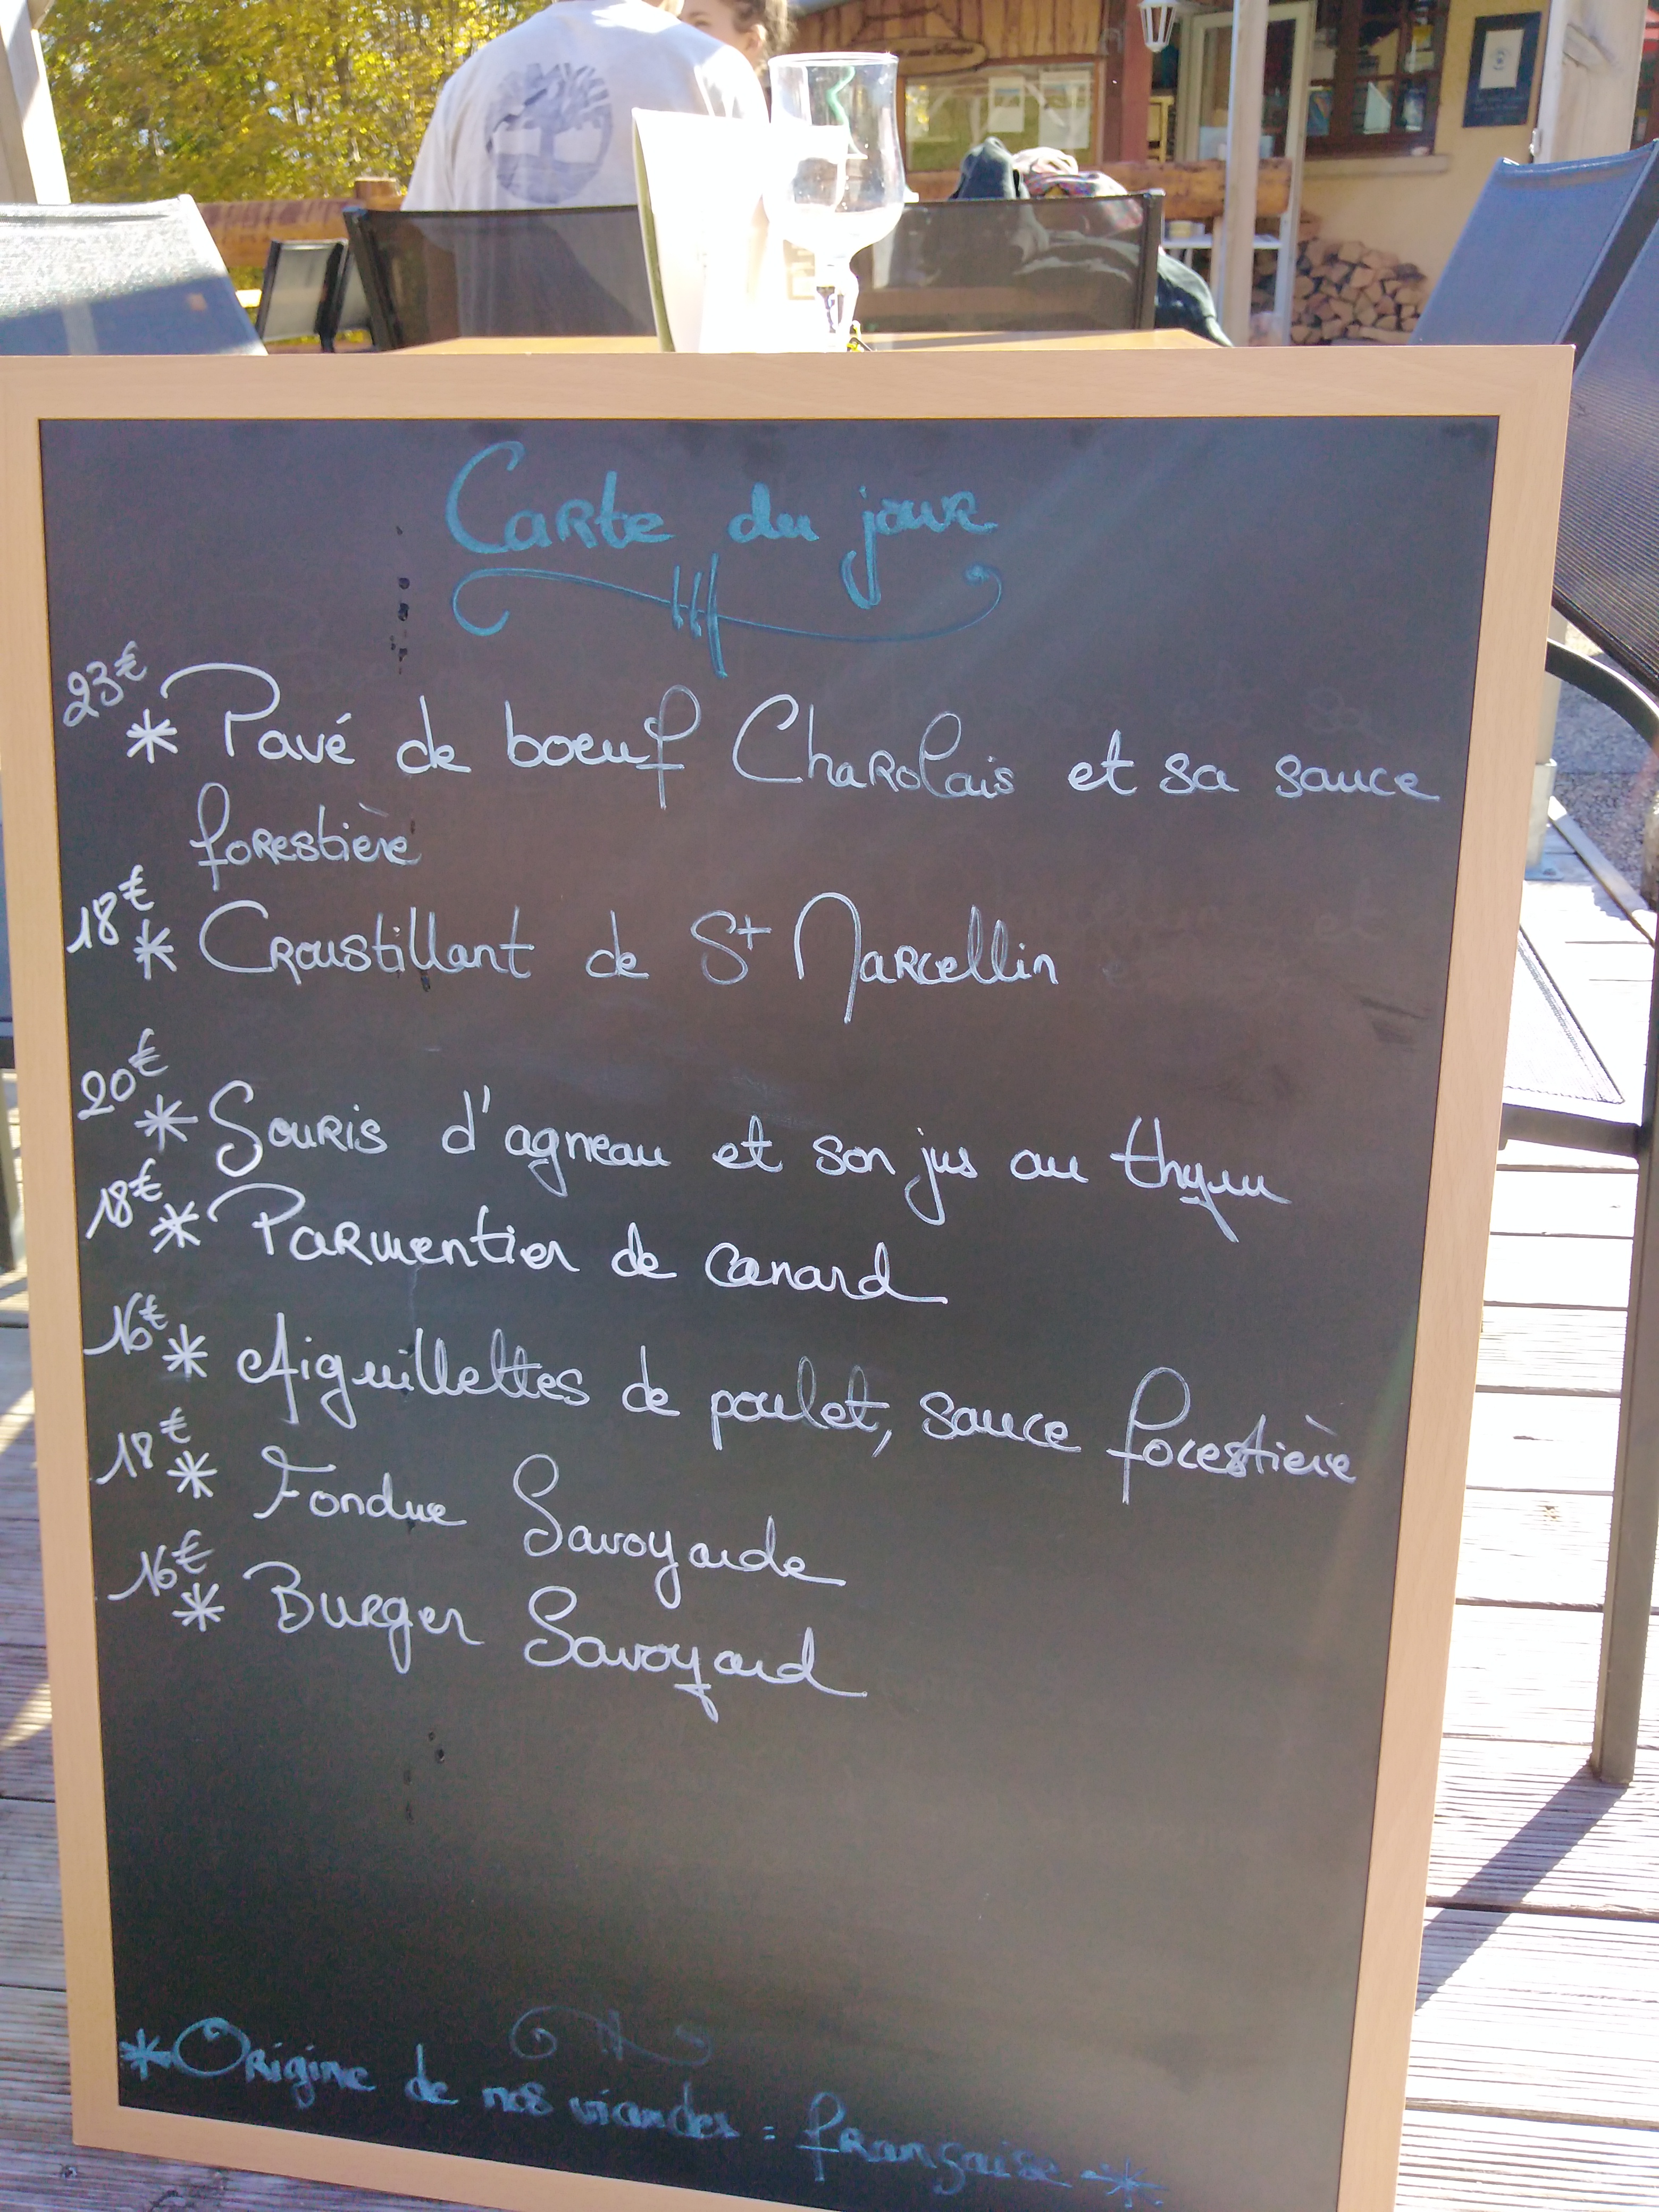 Carte du jour
23€
* Pavé de boeuf Charolais et sa sauce
forestière
18€
* Croustillant de St Marcellin
20€
* Souris d'agneau et son jus au thym
18€
* Parmentier de canard
16€
* Aiguillettes de poulet, sauce forestière
18€
* Fondue Savoyarde
16€
* Burger Savoyard
*Origine de nos viandes = française*